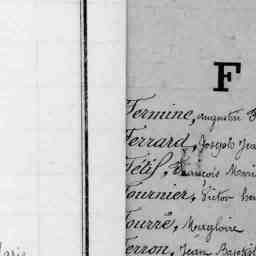 F
Fermine, Augustin
Ferrard, Joseph Jea
Fétif, François Mari
Fournier, Victor
Fourré, Magloire
Ferron, Jean Baptist